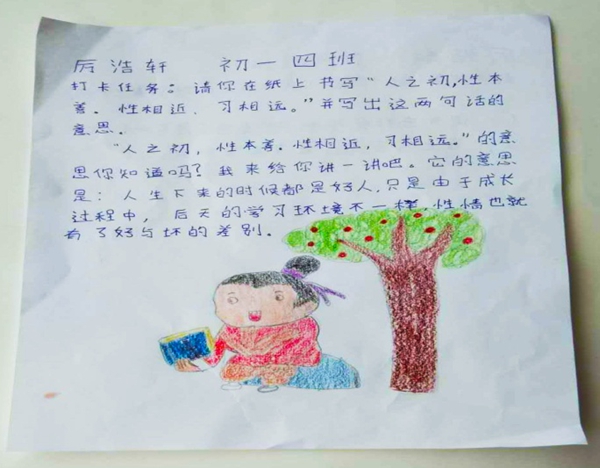 厉浩轩 初一四班
打卡任务：请你在纸上书写“人之初，性本
善．性相近．习相远。”并写出这两句话的
意思．
“人之初，性本善．性相近，习相远。”的意
思你知道吗？我来给你讲一讲吧。它的意思
是：人生下来的时候都是好人，只是由于成长
过程中，后天的学习环境不一样，性情也就
有了好与坏的差别。